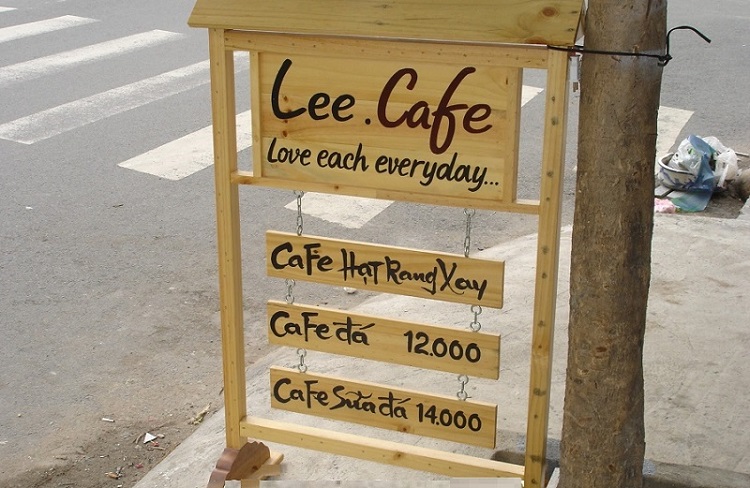 Lee . Cafe
Love each everyday...
CaFe Hạt Rang Xay
CaFe đá 12.000
CaFe Sữa đá 14.000